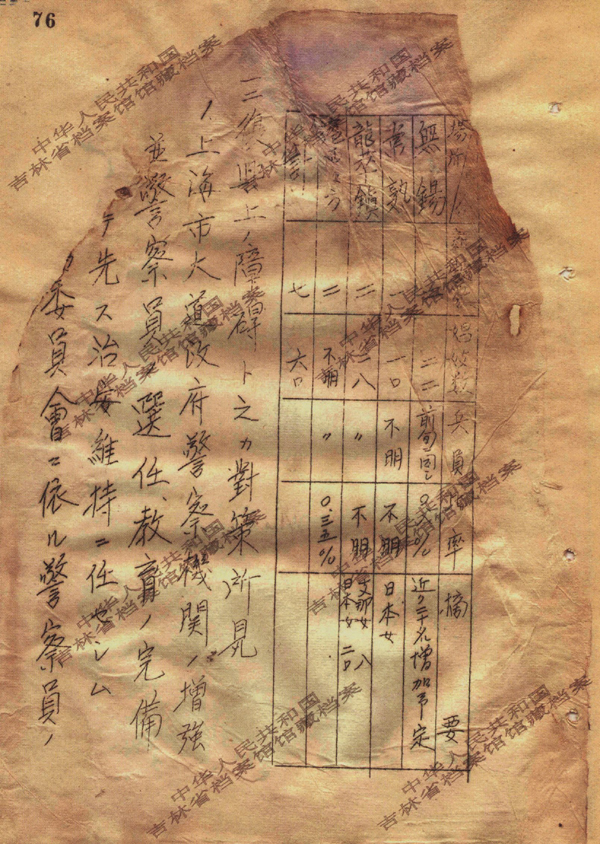 76
場所
娼妓数
兵員
率
摘要
無錫
二二
前旬同シ
近ク二十名増加予定
常熟
一〇
不明
不明
日本女
龍不鎮
二
二八
〃
不明
支那女 八
日本女 二〇
二
不明
〃
〇.三五%
七
六〇
上ノ障碍ト之カ對策所見
1.上海市大道政府警察機関ノ増強
並警察員選任、教育ノ完備
テ先ス治安維持ニ任セシム
委員會ニ依ル警察員ノ
中华人民共和国
吉林省档案馆馆藏档案
中华人民共和国
吉林省档案馆馆藏档案
中华人民共和国
吉林省档案馆馆藏档案
中华人民共和国
吉林省档案馆馆藏档案
中华人民共和国
吉林省档案馆馆藏档案
中华人民共和国
吉林省档案馆馆藏档案
中华人民共和国
吉林省档案馆馆藏档案
中华人民共和国
吉林省档案馆馆藏档案